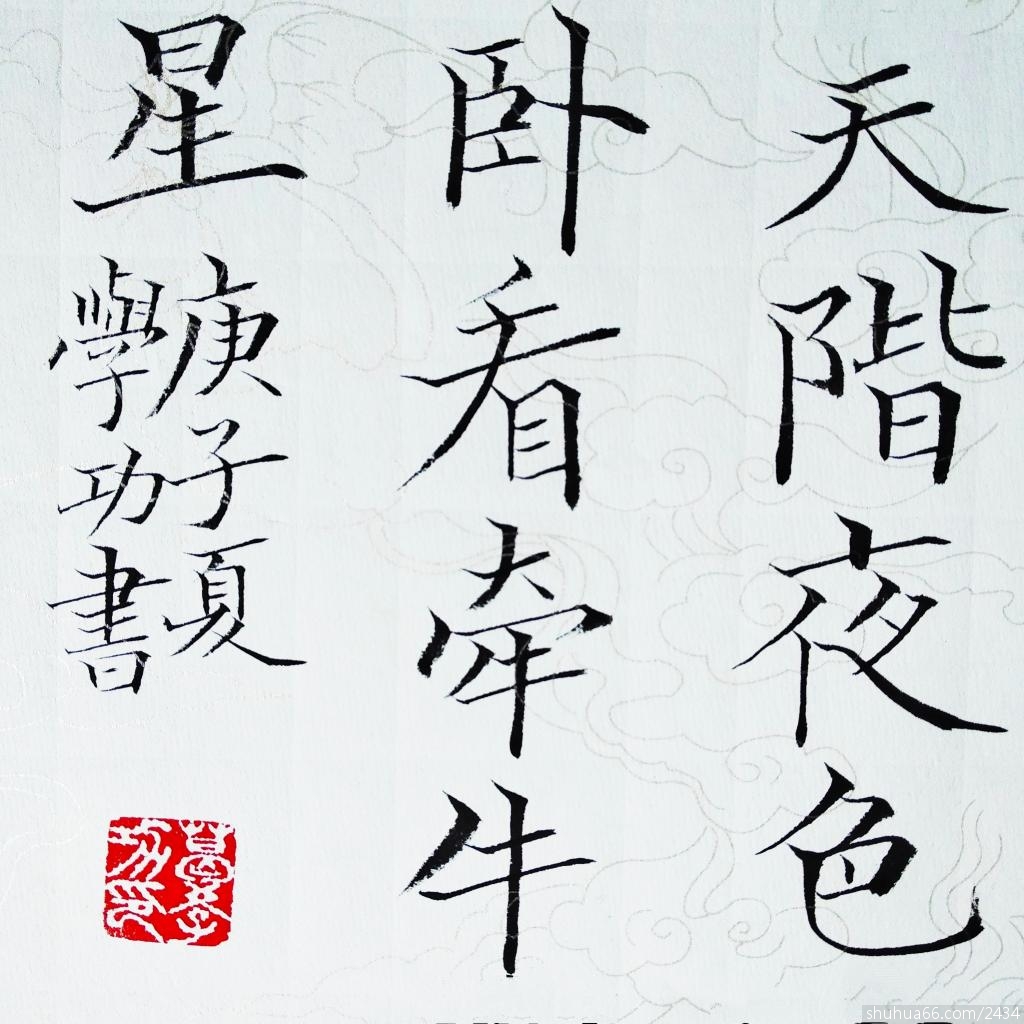 天階夜色
卧看牽牛
星
庚子夏
學功書
shuhua66.com/2434